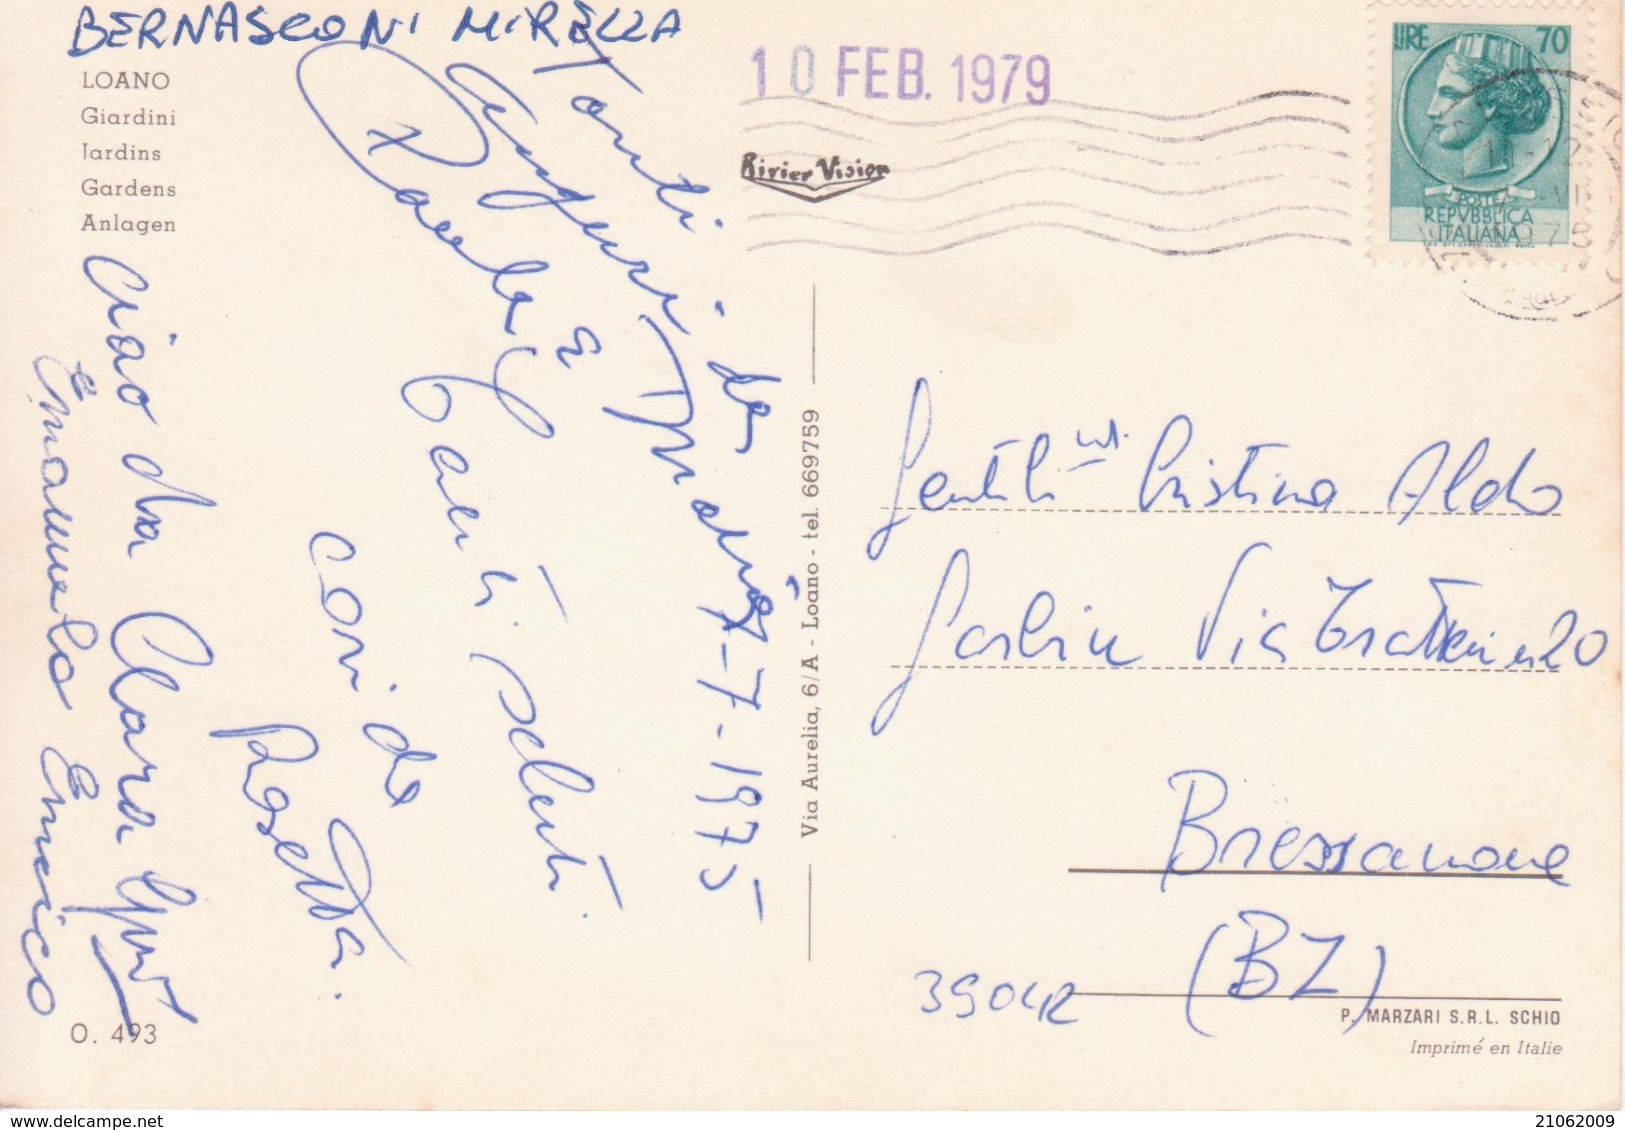 BERNASCONI MIRELLA
LOANO
Giardini
Jardins
Gardens
Anlagen
10 FEB. 1979
Rivier Vision
LIRE 70
POSTE
REPVBBLICA
ITALIANA
Tanti
auguri da
Paola e
Mario
7-7-1975
Tanti saluti
cari da
Rosetta.
Ciao da Clara
Emanuela Enrico
O. 493
Via Aurelia, 6/A - Loano - tel. 669759
Gentili Cristina Aldo
Via 20
Bressanone
(BZ)
39042
P. MARZARI S.R.L. SCHIO
Imprimé en Italie
www.delcampe.net
21062009